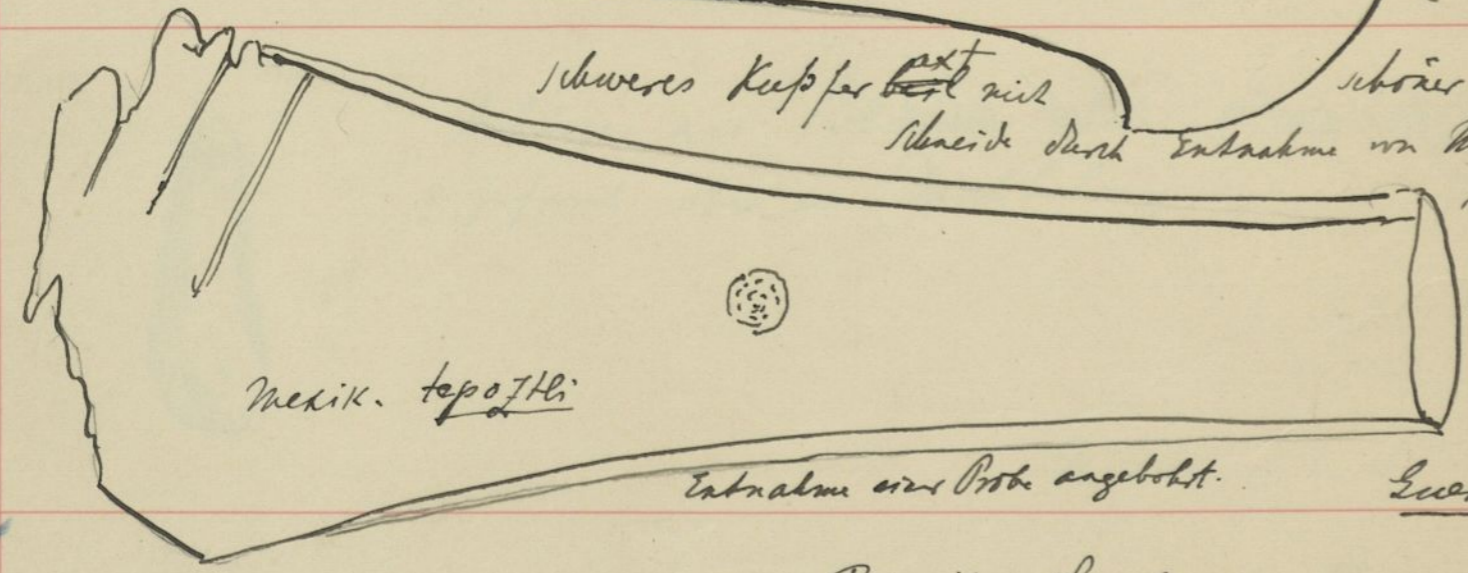 schweres Kupfer beil axt mit
schöner
schneide durch Entnahme von
mexik. tepoztli
Entnahme einer Probe angebohrt.